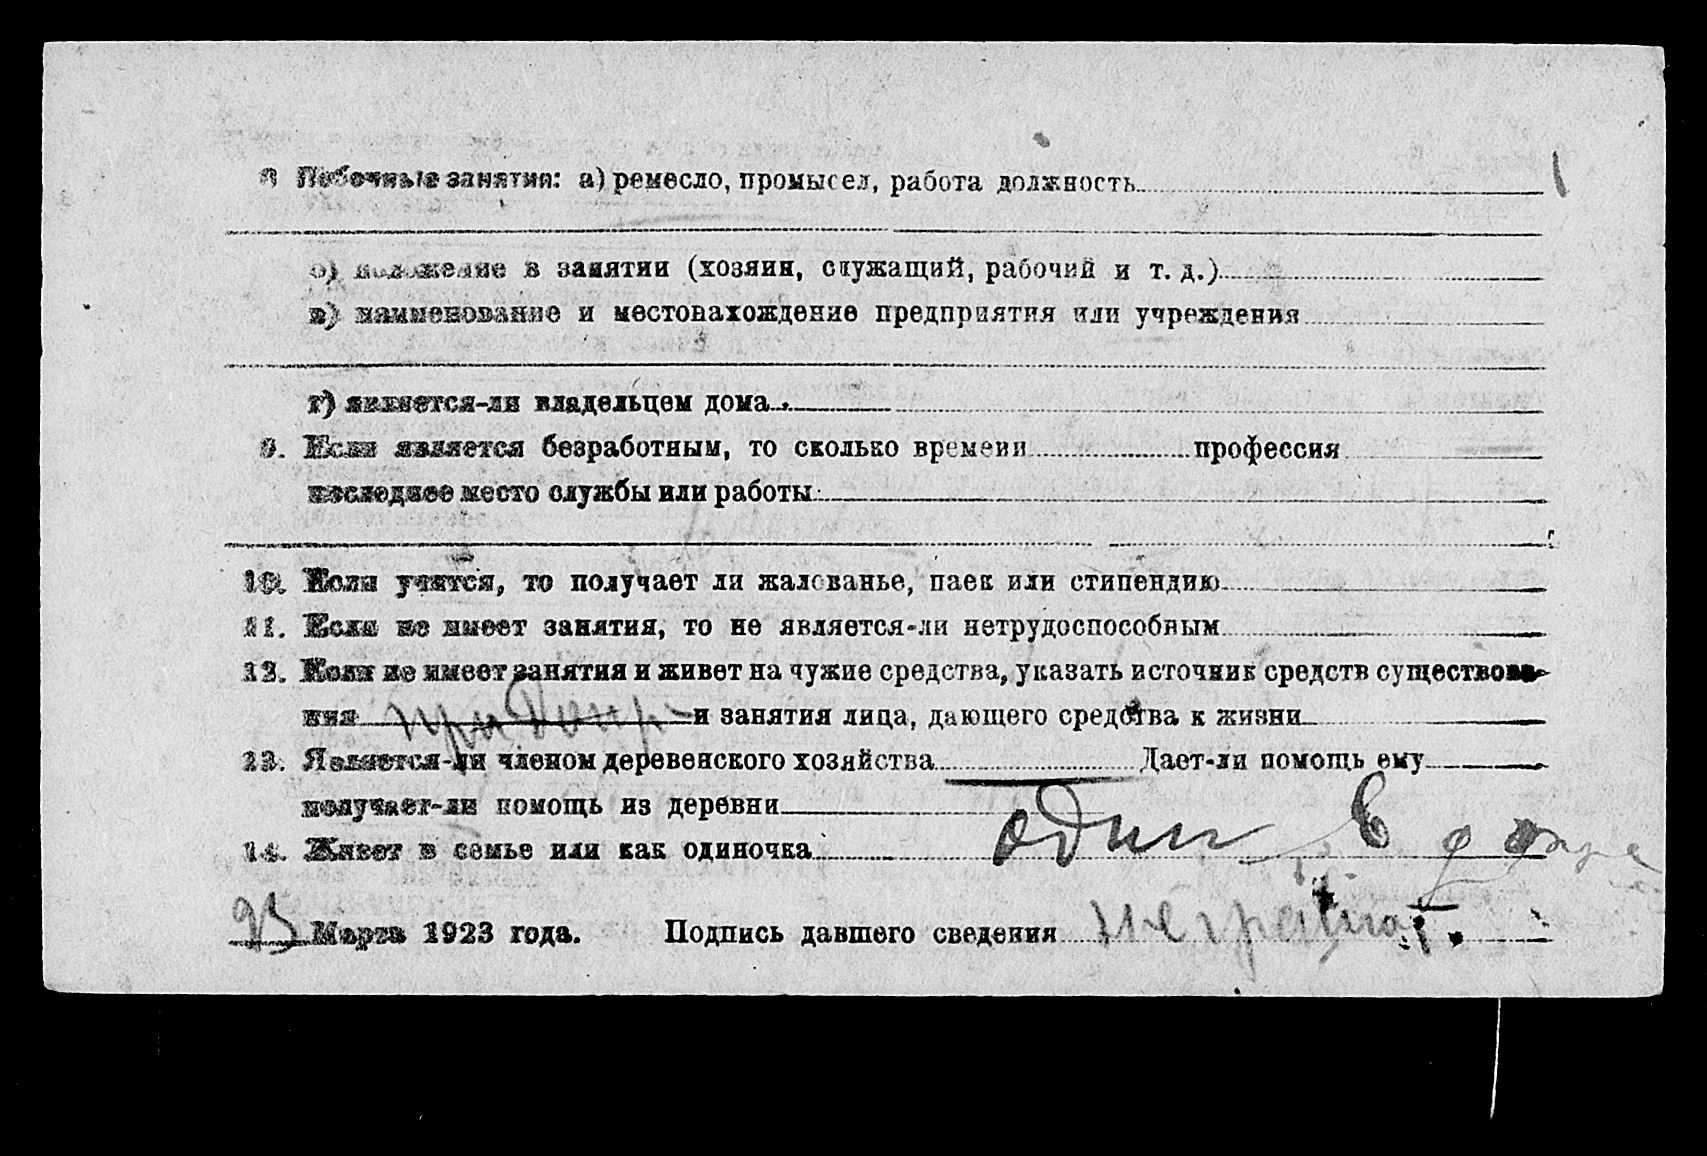 8 Побочные занятия: а) ремесло, промысел, работа должность
б) положение в занятии (хозяин, служащий, рабочий и т. д.)
в) наименование и местонахождение предприятия или учреждения
г) является-ли владельцем дома
9. Если является безработным, то сколько времени профессия
последнее место службы или работы
10. Если учится, то получает ли жалованье, паек или стипендию
11. Если не имеет занятия, то не является-ли нетрудоспособным
12. Если не имеет занятия и живет на чужие средства, указать источник средств существова-
ния при Допр- и занятия лица, дающего средства к жизни
13. Является-ли членом деревенского хозяйства Дает-ли помощь ему
получает-ли помощь из деревни
14. Живет в семье или как одиночка один в
23 Марта 1923 года. Подпись давшего сведения неграмот.